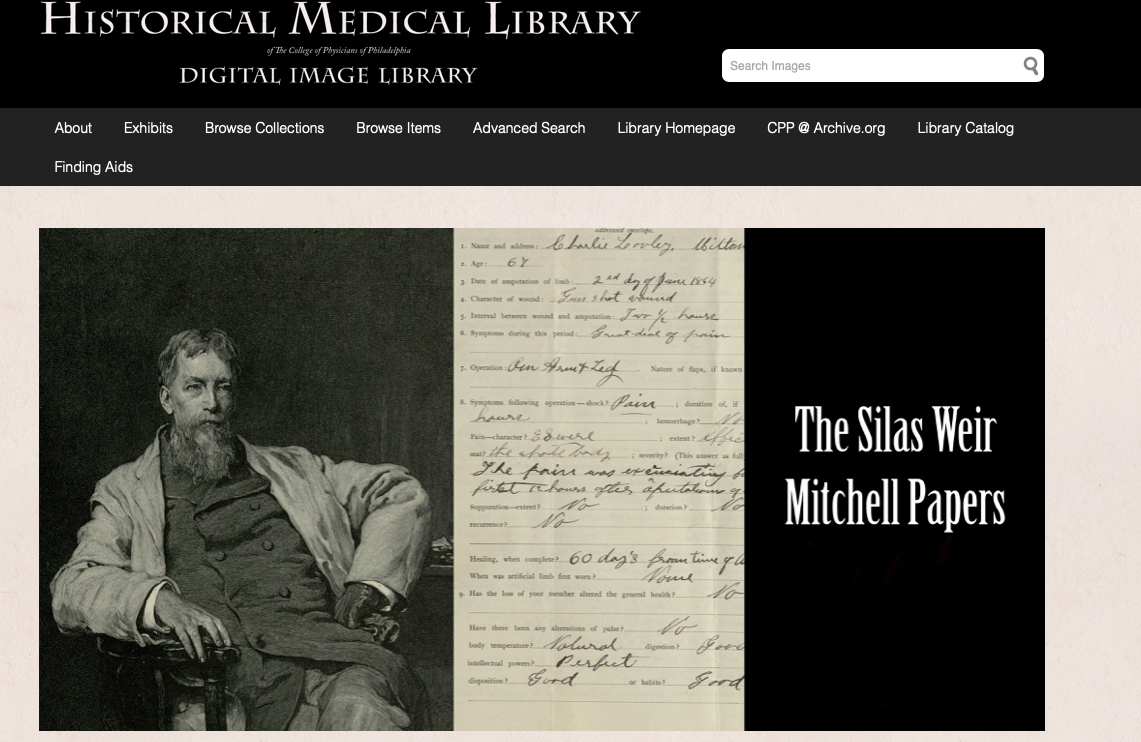 HISTORICAL MEDICAL LIBRARY
of The College of Physicians of Philadelphia
DIGITAL IMAGE LIBRARY
Search Images
About Exhibits Browse Collections Browse Items Advanced Search Library Homepage CPP @ Archive.org Library Catalog
Finding Aids
addressed envelope.
1. Name and address: Charlie Milton
2. Age: 67
3. Date of amputation of limb: 2nd day of June 1864
4. Character of wound: Gun shot wound
5. Interval between wound and amputation: Two ½ hours
6. Symptoms during this period: Great deal of pain
7. Operation: Arm & Leg Nature of flaps, if known
8. Symptoms following operation—shock? Pain ; duration of, if
hours ; hemorrhage? No
Pain—character? ; extent?
seat? the whole body ; severity? (This answer as full
The pain was excruciating
first hours after
Suppuration—extent? No ; duration? No
recurrence? No
Healing, when complete? 60 day's from time of
When was artificial limb first worn? None
9. Has the loss of your member altered the general health? No
Have there been any alterations of pulse? No
body temperature? Natural digestion? Good
intellectual powers? Perfect
disposition? Good or habits? Good
The Silas Weir
Mitchell Papers